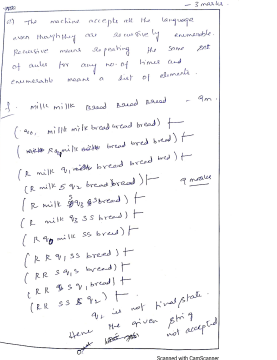 - 3 marks.
e) The machine accepts all the language
even though they are recursively enumerable.
Recursive means repeating the same set
of rules for any no. of times and
enumerable means a list of elements.
f. milk milk bread bread bread - 9m.
(q0, milk milk bread bread bread) ⊢
milk bread bread bread) ⊢
(R milk q1 bread bread bred) ⊢
(R milk S q2 bread bread) ⊢
(R milk bread) ⊢ 9 marks
(R milk q3 SS bread) ⊢
(R q0 milk SS bred) ⊢
(RR q1 SS bread) ⊢
(RR S q1 S bread) ⊢
(RR S q1 bread) ⊢
(RR SS q2) ⊢
is not final state.
Hence the given string
not accepted
Scanned with CamScanner